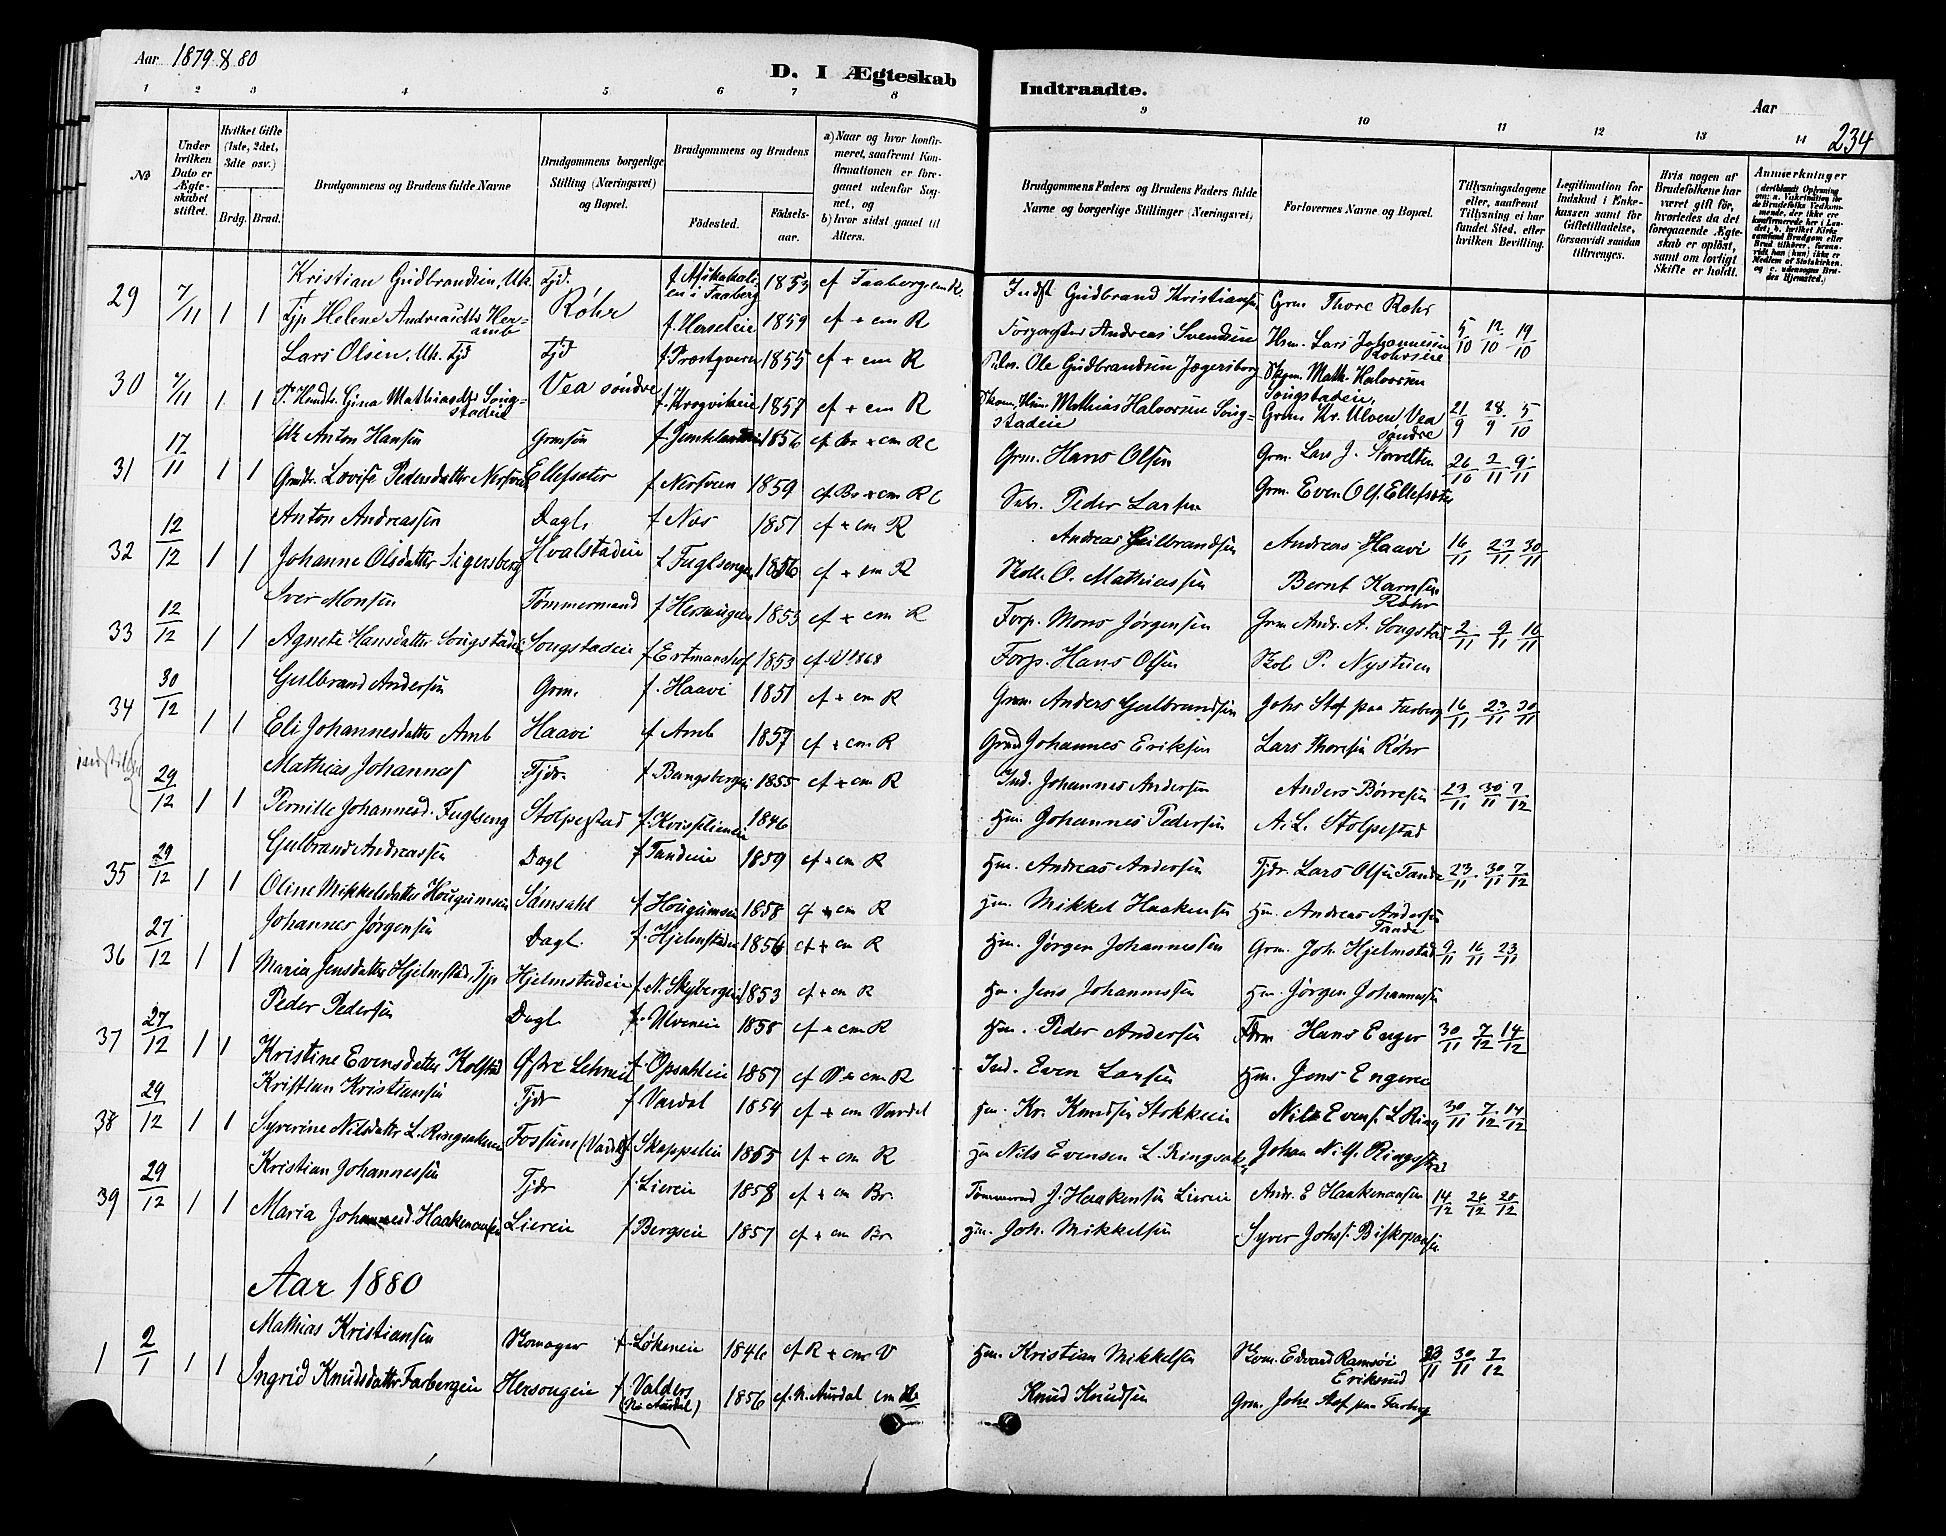 Aar 1879 & 80
D. I Ægteskab Indtraadte.
Aar
234
1 2 3 4 5 6 7 8 9 10 11 12 13 14
No
Under hvilken Dato er Ægteskabet stiftet.
Hvilket Gifte (1ste, 2det, 3dte osv.)
Brdg. Brud.
Brudgommens og Brudens fulde Navne
Brudgommens borgerlige Stilling (Næringsvei) og Bopæl.
Brudgommens og Brudens
Fødested.
Fødselsaar.
a) Naar og hvor konfirmeret, saafremt Konfirmationen er foregaaet udenfor Sognet, og
b) hvor sidst gaaet til Alters.
Brudgommens Faders og Brudens Faders fulde Navne og borgerlige Stillinger (Næringsvei)
Forlovernes Navne og Bopæl.
Tillysningsdagene eller, saafremt Tillysning ei har fundet Sted, efter hvilken Bevilling.
Legitimation for Indskud i Enkekassen samt for Giftetilladelse, forsaavidt saadan tiltrænges.
Hvis nogen af Brudefolkene har været gift før, hvorledes da det foregaaende Ægteskab er opløst, samt om lovligt Skifte er holdt.
Anmærkninger
Kristian Gudbrandsen, Uk. Tjd. 1853 cf Faaberg cm R. Indst Gudbrand Kristiansen Grm Thore Rohr
29 7/11 1 1 Tjp Helene Andreasdtr Røhr 1859 cf + cm R Andreas Svendsen Hsm. Lars Johannesen Rohrseie 5/10 12/10 19/10
Lars Olsen, Uk. Tjd Tjd f Præstqvern 1855 cf + cm R Ole Gudbrandsen Jægersborg Math. Halvorsen Songstadeie,
30 7/11 1 1 Gina Mathiasdtr Songstadeie Vea søndre f. Krogvikeie 1857 cf + cm R Mathias Halvorsen Songstadeie Grm Kr. Ulven Vea søndre 21/9 28/9 5/10
Uk Anton Hansen Grmsøn 1856 Grm. Hans Olsen Grm. Lars J. Storvelten
31 17/11 1 1 Lovise Pedersdatter Nersveen Ellefsæter f Nersveen 1859 Peder Larsen Grm. Even Ols. Ellefsæter 26/10 2/11 9/11
Anton Andreassen Dagl. f Næs 1851 cf + cm R Andreas Gulbrandsen Andreas Haavi
32 12/12 1 1 Johanne Olsdatter Sigersberg Hvalstadeie f Fuglsengen 1856 cf + cm R O. Mathiassen Bernt Karnsen Røhr 16/11 23/11 30/11
Iver Monsen Tømmermand 1853 cf + cm R Forp. Mons Jørgensen Grm Andr. A. Songstad
33 12/12 1 1 Agnete Hansdatter Songstadeie Songstadeie f Ertmanshof 1853 Forp. Hans Olsen P. Nystuen 2/11 9/11 16/11
Gulbrand Andersen Grm. f. Haavi 1851 cf + cm R Grm. Anders Gulbrandsen
34 30/12 1 1 Eli Johannesdatter Amb Haavi f Amb 1857 cf + cm R Johannes Eriksen Lars Thoresen Røhr 16/11 23/11 30/11
Mathias Johannesf Tjdr. f Bangsbergeie 1855 cf + cm R Ind. Johannes Andersen Anders Børresen
29/12 1 1 Pernille Johannesd. Fuglseng Stolpestad 1846 Hm. Johannes Pedersen A. L. Stolpestad 23/11 30/11 7/12
Gulbrand Andreassen Dagl f Tandeie 1859 cf + cm R Hm. Andreas Andersen Tjdr. Lars Olsen Tande
35 29/12 1 1 Oline Mikkelsdatter Hougumseie Samsahl f Hougumseie 1858 cf + cm R Hm. Mikkel Haakensen Hm. Andreas Andersen Tande 23/11 30/11 7/12
Johannes Jørgensen Dagl. f. Hjelmstadeie 1856 cf + cm R Hm. Jørgen Johannessen Grm. Joh. Hjelmstad
36 27/12 1 1 Maria Jensdatter Hjelmstad, Tjp Hjelmstadeie f. N. Skybergeie 1853 cf + cm R Hm. Jens Johannessen Hm. Jørgen Johannessen 9/11 16/11 23/11
Peder Pedersen Dagl f. Ulveneie 1858 cf + cm R Hm. Peder Andersen Hans Enger
37 27/12 1 1 Kristine Evensdatter Kolstad Østre f. Opsahleie 1857 cf + cm R Ind. Even Larsen Hm. Jens Engereie 30/11 7/12 14/12
Kristian Kristiansen Tjdr f Vardal 1854 cf + cm Vardal Hm. Kr. Knudsen Stokkeie Nils Evens. L. Ring
38 29/12 1 1 Syverine Nilsdatter L. Ringsakeren Fossum (Vardal) f Skappeleie 1865 cf + cm R Hm Nils Evensen L. Ringsaker Johan Nils. Ringstad 30/11 7/12 14/12
Kristian Johannessen Tjdr f. Liereie 1858 cf + cm Br. J. Haakensen Liereie Andr. E Haakenansen
39 29/12 1 1 Maria Johannesd. Haakenansen Liereie f Bergseie 1857 cf + cm Br. Hm. Joh. Mikkelsen Syver Johs. 14/12 26/12 28/12
Aar 1880
Mathias Kristiansen Skomager f. Løkeneie 1846 cf R + cm V Hm. Kristian Mikkelsen Edvard Ramsøi Eriksrud
1 2/1 1 1 Ingrid Knudsdatter Farbergeie Hersougeie f Valders (No Aurdal) 1856 cf. N. Aurdal cm Knud Knudsen Grm. Johs 23/11 30/11 7/12